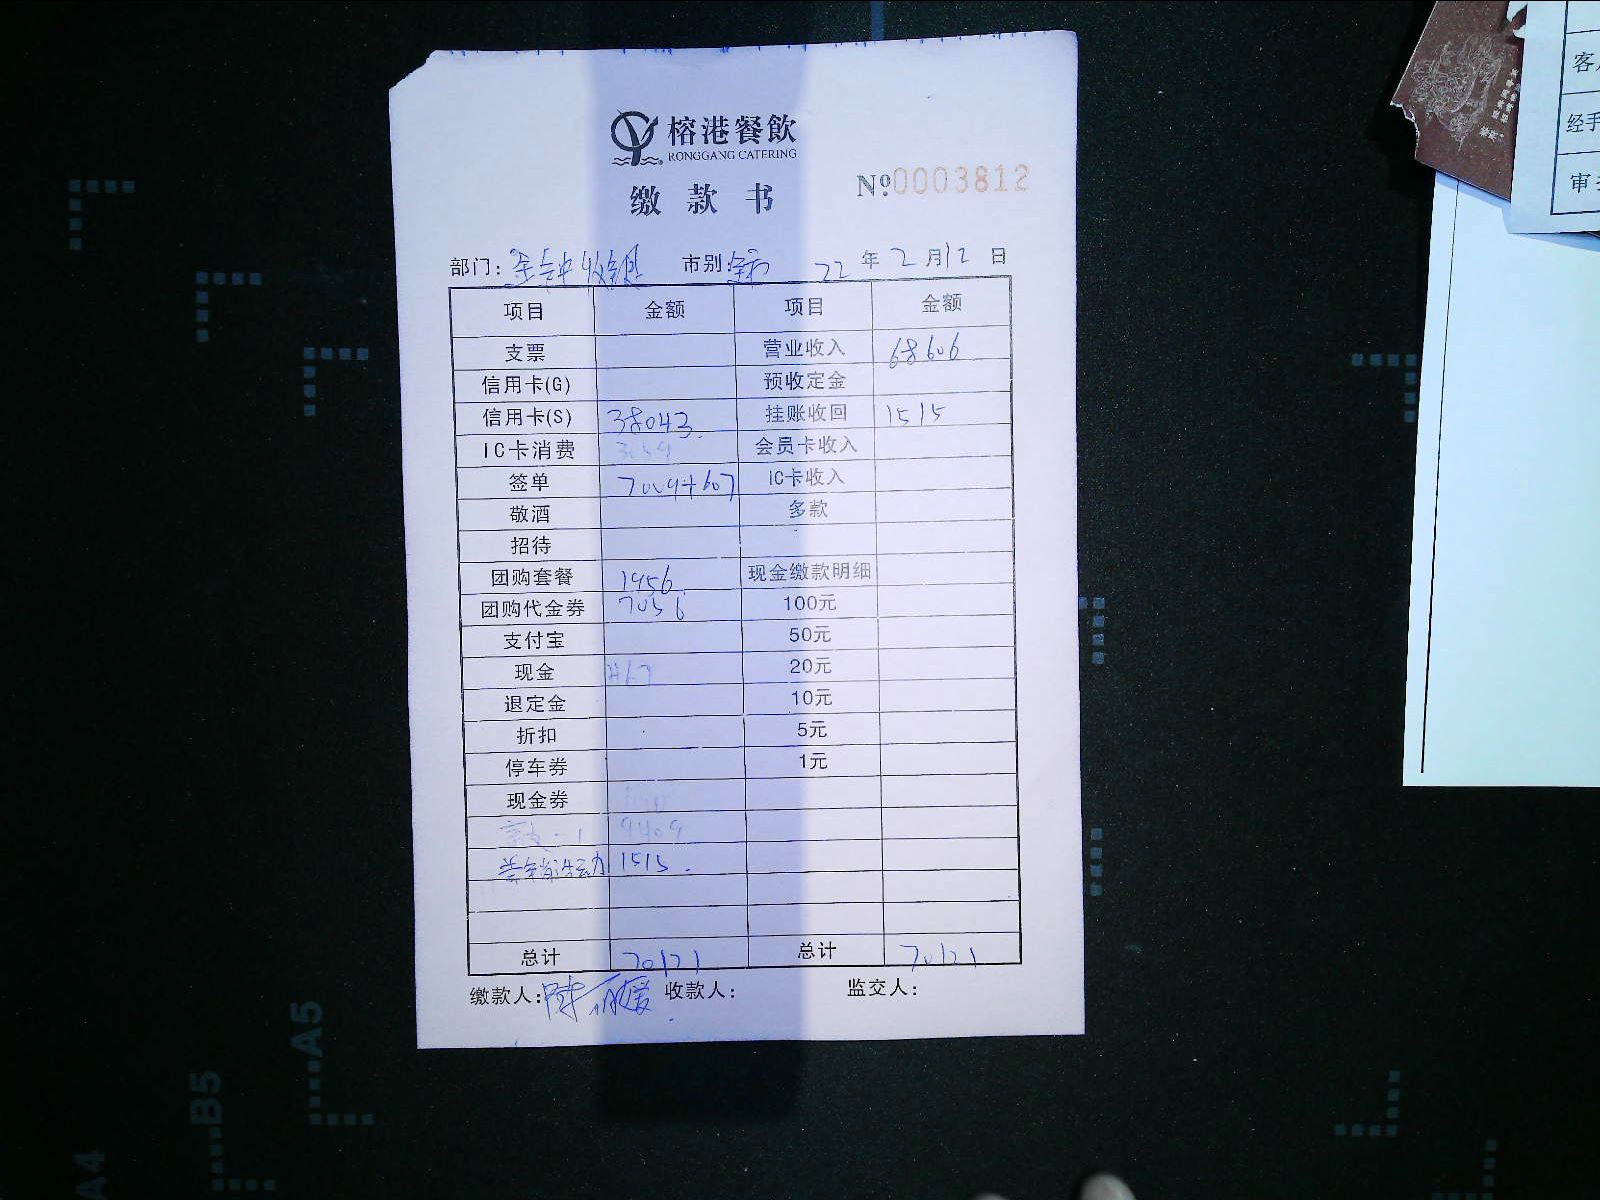 榕港餐飲
RONGGANG CATERING
缴款书
№0003812
部门: 金钟收银 市别: 全市 22年2月12日
项目 金额 项目 金额
支票 营业收入 68606
信用卡(G) 预收定金
信用卡(S) 38043. 挂账收回 1515
IC卡消费 会员卡收入
签单 7009+607 IC卡收入
敬酒 多款
招待
团购套餐 1956. 现金缴款明细
团购代金券 7056 100元
支付宝 50元
现金 20元
退定金 10元
折扣 5元
停车券 1元
现金券
9409
1515.
总计 70121 总计 70121
缴款人: 陈丽媛 收款人: 监交人:
客
经手
审
A5
B5
A4